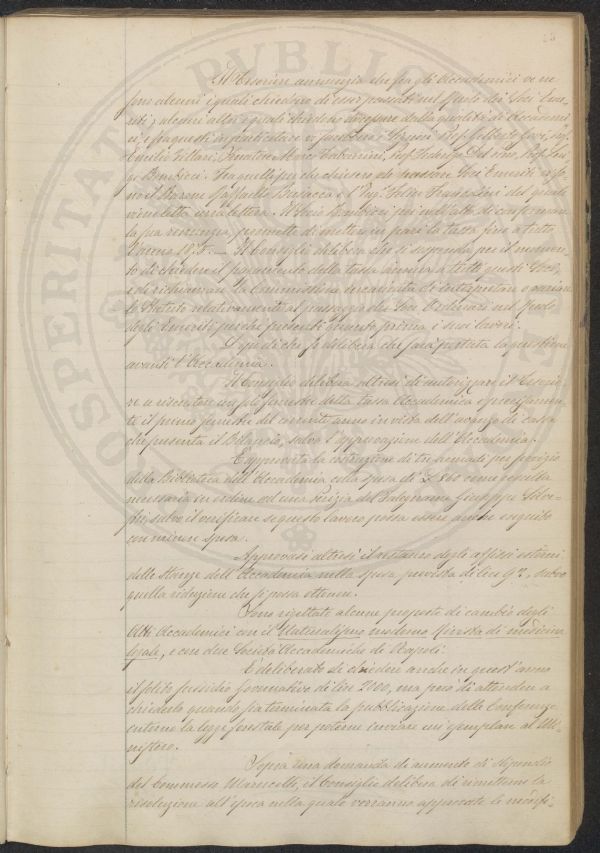 Il Tesoriere annunzia che fra gli Accademici ve ne
sono alcuni i quali chiedono di esser passati nel Ruolo dei Soci Eme-
riti; alcuni altri i quali chiedono dalla qualità di Accademi-
ci, e fra questi in particolare i Prof. Gilberto Govi, Ing.
Emilio Villari, Senatore Marco Tabarrini, Prof. Federigo Del Rosso, Prof. Lui-
gi Bombicci. Fra quelli poi che chiesero di passare Soci Emeriti
il Barone Raffaello Busacca e l'Ing. Felice Francolini del quale
vien letta una lettera. Il Socio Bombicci poi nell'atto di confermare
la sua renunzia, promette di mettersi in pari la tassa fino a tutto
l'anno 1875. — Il Consiglio delibera che si sospenda per il momen-
to di chiedere il pagamento della tassa annua a tutti questi Soci,
e di richiamare la Commissione incaricata di interpetrare o variare
lo Statuto relativamente al passaggio dei Soci Ordinari nel Ruolo
degli Emeriti perché presenti quanto prima i suoi lavori.
Dopo di che si delibera che sarà portata la questione
avanti l'Accademia.
Il Consiglio delibera altresì di autorizzare il Tesorie-
re a riscuotere un solo semestre della tassa Accademica e precisamen-
te il primo semestre del corrente anno in vista dell'avanzo di cassa
che presenta il Bilancio, salvo l'approvazione dell'Accademia.
È approvata la costruzione di tre armadi per servizio
della Biblioteca dell'Accademia colla spesa di £ 860 come resulta
necessaria in ordine ad una perizia del Falegname Giuseppe
salvo il verificare se questo lavoro possa essere anche eseguito
con minore spesa.
Approvasi altresì il restauro degli affissi esterni
delle stanze dell'Accademia nella spesa prevista di lire salvo
quella riduzione che si possa ottenere.
Sono rigettate alcune proposte di cambio degli
Atti Accademici con il Naturalismo moderno Rivista di medicina
legale, e con due Società Accademiche di Napoli.
È deliberato di chiedere anche in quest'anno
il solito sussidio governativo di lire 2100, ma però di attendere a
chiederlo quando sia terminata la pubblicazione delle Conferenze
intorno la legge forestale per poterne inviare un esemplare al Mi-
nistero.
Sopra una domanda di aumento di stipendio
del Commesso Marucelli, il Consiglio delibera di rimetterne la
risoluzione all'epoca nella quale verranno approvate le modifi-